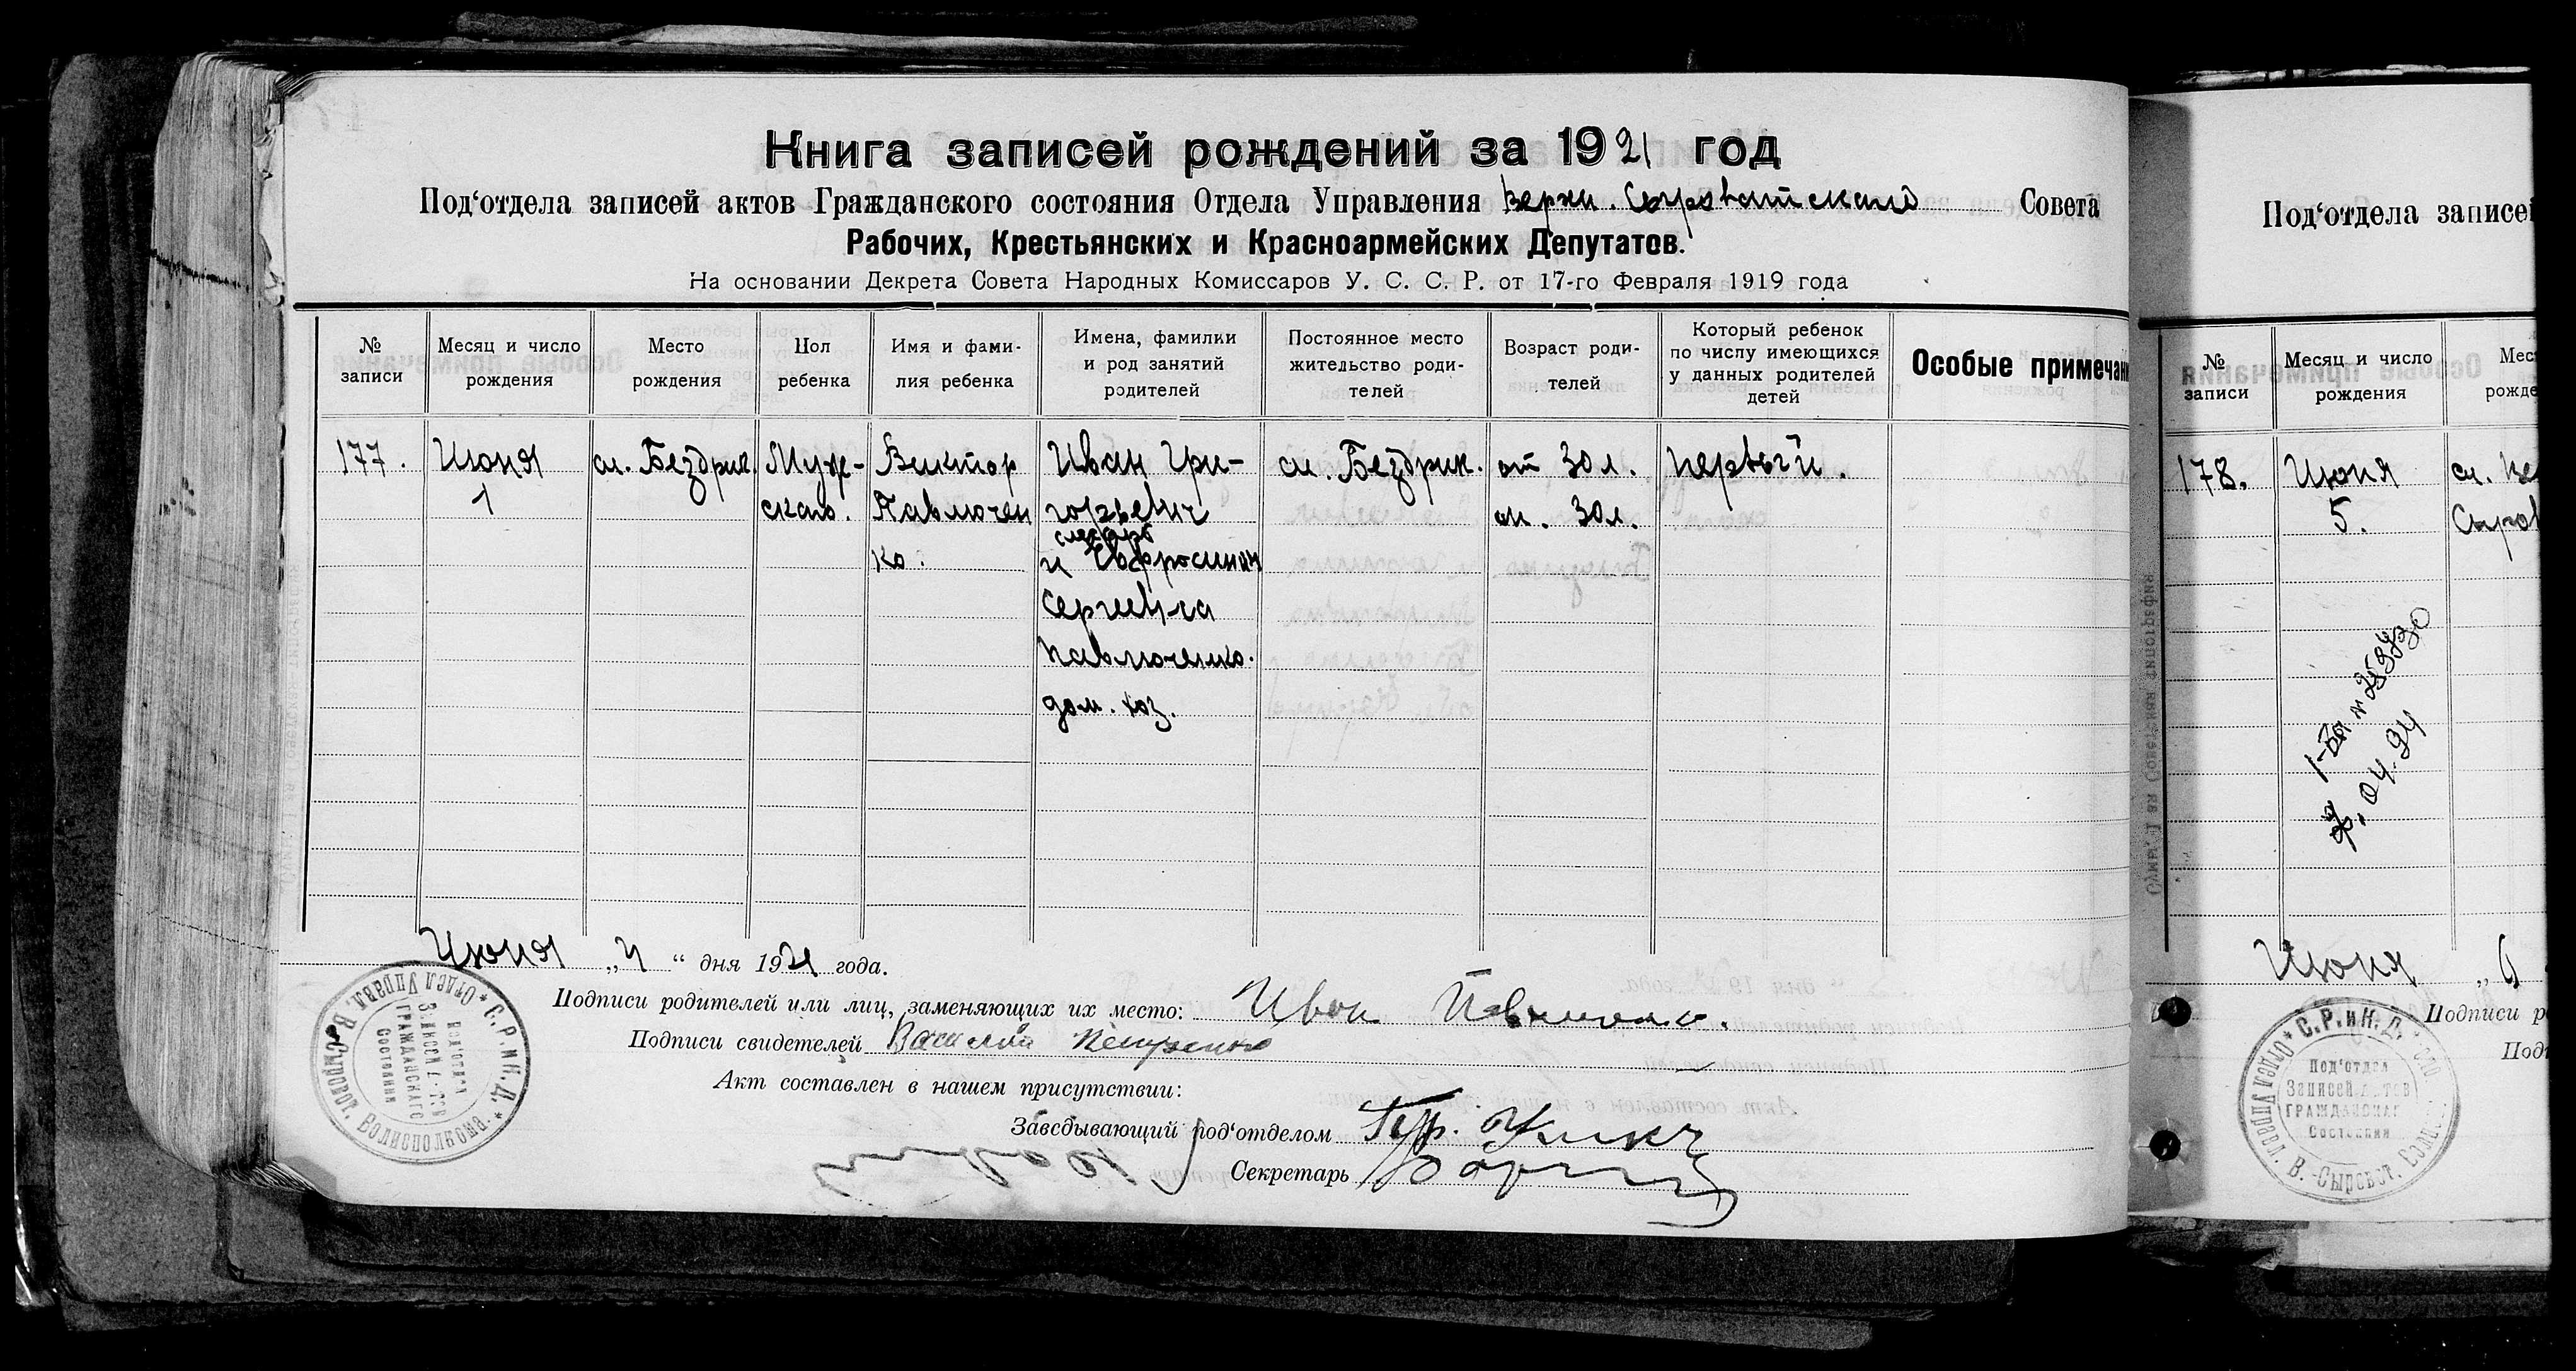 Книга записей рождений за 1921 год
Под‘отдела записей актов Гражданского состояния Отдела Управления Верхн. Сыроватского Совета
Рабочих, Крестьянских и Красноармейских Депутатов.
На основании Декрета Совета Народных Комиссаров У. С. С. Р. от 17-го Февраля 1919 года
№ записи
Месяц и число рождения
Место рождения
Пол ребенка
Имя и фами-
лия ребенка
Имена, фамилки
и род занятий
родителей
Постоянное место
жительство роди-
телей
Возраст роди-
телей
Который ребенок
по числу имеющихся
у данных родителей
детей
Особые примечан
177.
Июня
1
сл. Бездрик.
Муж-
ского.
Виктор
Павлючен
ко.
Иван Гри-
горьевич
слесарь
и Евфросиния
Сергиевна
Павлюченко.
дом. хоз.
сл. Бездрик.
от 30 л.
м. 30 л.
первый.
Июня „4“ дня 1921 года.
Подписи родителей или лиц, заменяющих их место: Иван
Подписи свидетелей Василий
Акт составлен в нашем присутствии:
Заведывающий под‘отделом
Секретарь
* С.Р. и К.Д. * Отдел Управл. В.-Сыроват. Волисполкома.
Под‘отдел
Записей актов
ГРАЖДАНСКАГО
Состояния
Под‘отдела записей
№ записи
Месяц и число рождения
Мес
рожде
178.
Июня
5.
сл. Ве
Сыров
04.94
Июня „6
Подписи р
Под
* С.Р. и К. Д. * Отдел Управл. В.-Сыроват.
Под‘отдел
Записей актов
ГРАЖДАНСКАГ
Состояния